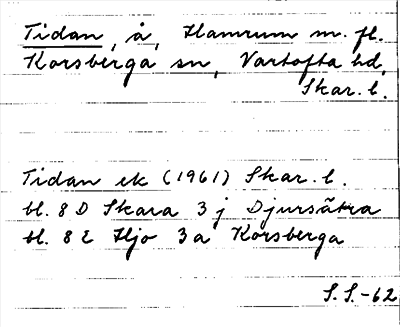 Tidan, å, Hamrum m. fl.
Korsberga sn, Vartofta hd,
Skar. l.
Tidan ek (1961) Skar. l.
bl. 8 D Skara 3 j Djursätra
bl. 8 E Hjo 3 a Korsberga
S. S. -62